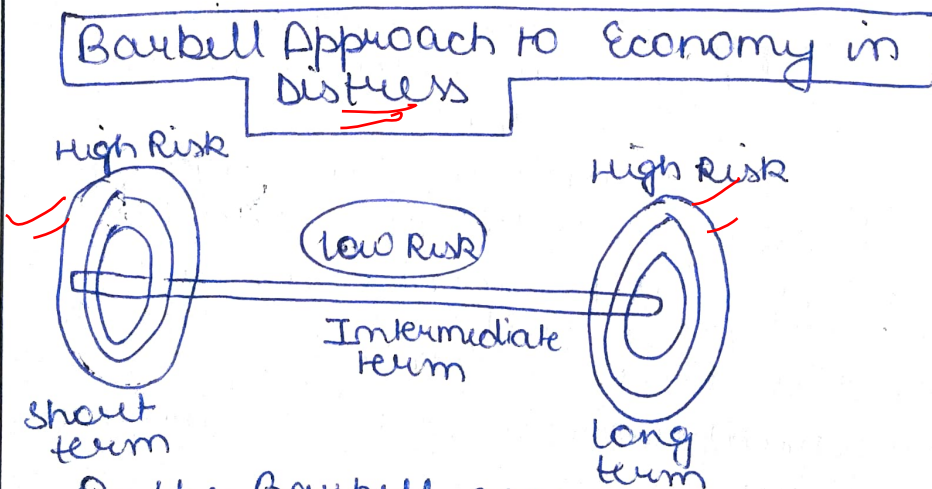 Barbell Approach to Economy in
Distress
High Risk
High Risk
Low Risk
Intermediate
term
Short
term
Long
term
Barbell